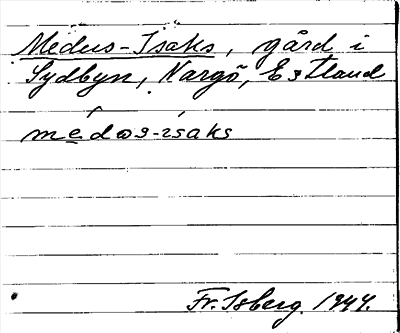 Medus-Isaks, gård i
Sydbyn, Nargö, Estland
médɷs-ísaks
Fr. Isberg. 1944.